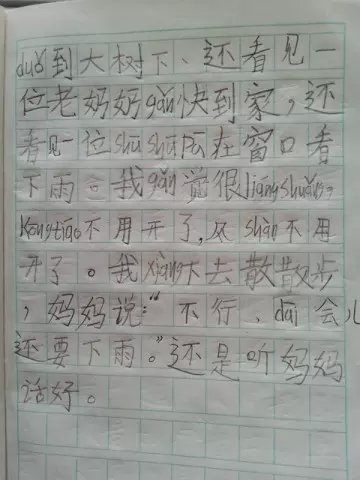 duǒ到大树下、还看见一
位老奶奶gǎn快到家，还
看见一位shū shū pā在窗口看
下雨。我gǎn觉很liáng shuǎng。
Kōng tiáo不用开了，风shàn不用
开了。我xiǎng下去散散步
，妈妈说：“不行、dāi会儿
还要下雨。”还是听妈妈
话好。